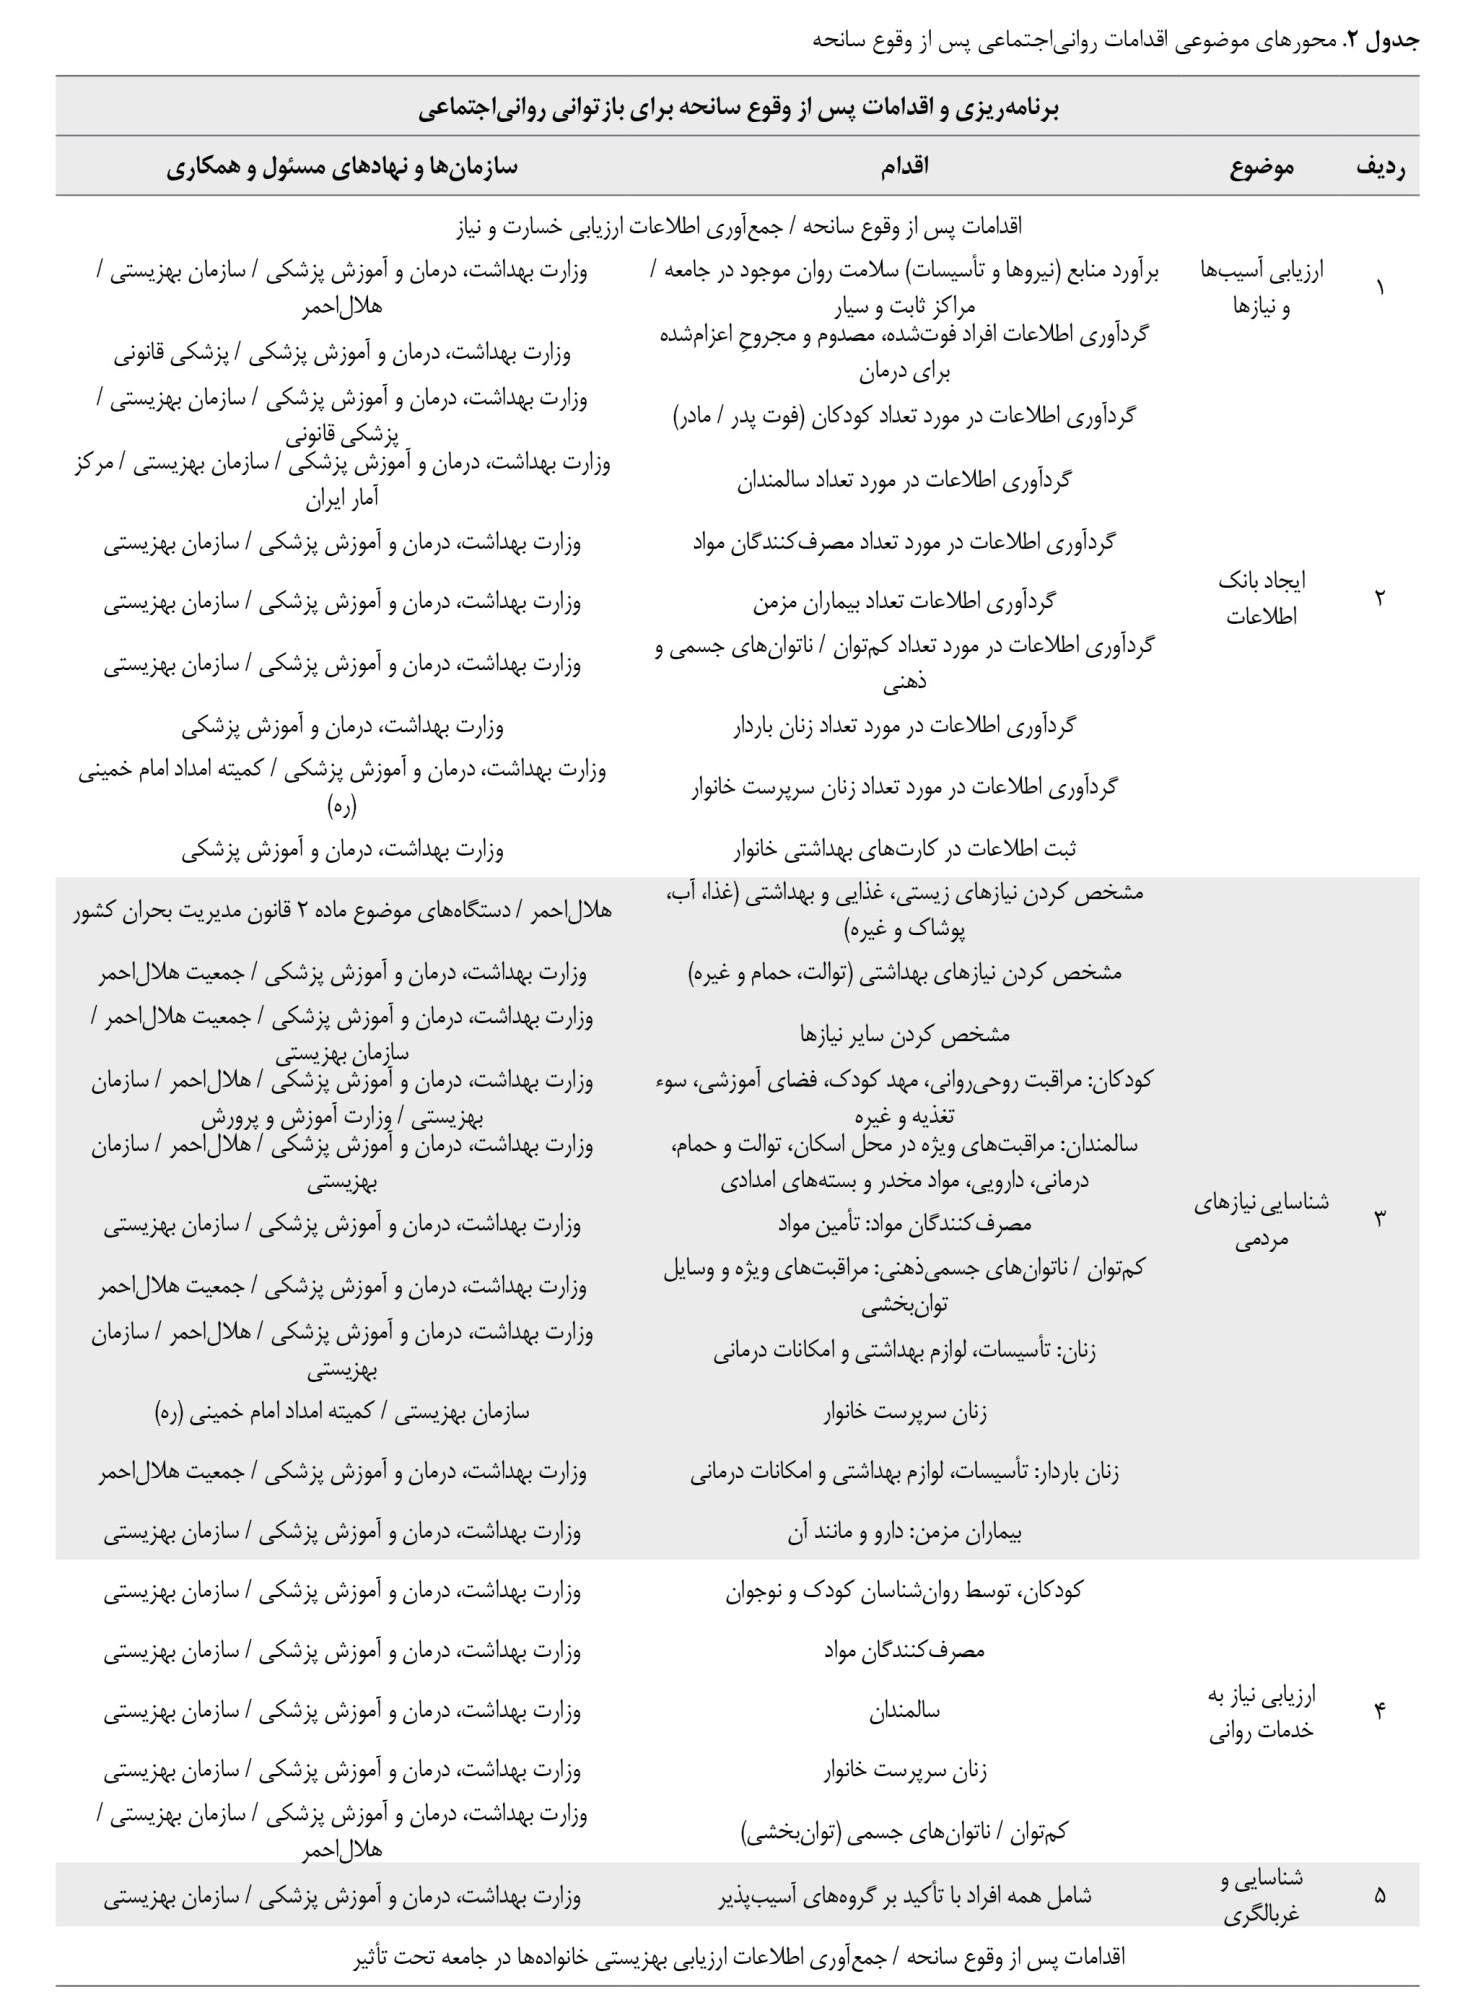 جدول ۲. محورهای موضوعی اقدامات روانی‌اجتماعی پس از وقوع سانحه
برنامه‌ریزی و اقدامات پس از وقوع سانحه برای بازتوانی روانی‌اجتماعی
ردیف موضوع اقدام سازمان‌ها و نهادهای مسئول و همکاری
اقدامات پس از وقوع سانحه / جمع‌آوری اطلاعات ارزیابی خسارت و نیاز
۱
ارزیابی آسیب‌ها
و نیازها
برآورد منابع (نیروها و تأسیسات) سلامت روان موجود در جامعه /
مراکز ثابت و سیار
وزارت بهداشت، درمان و آموزش پزشکی / سازمان بهزیستی /
هلال‌احمر
گردآوری اطلاعات افراد فوت‌شده، مصدوم و مجروحِ اعزام‌شده
برای درمان
وزارت بهداشت، درمان و آموزش پزشکی / پزشکی قانونی
گردآوری اطلاعات در مورد تعداد کودکان (فوت پدر / مادر)
وزارت بهداشت، درمان و آموزش پزشکی / سازمان بهزیستی /
پزشکی قانونی
گردآوری اطلاعات در مورد تعداد سالمندان
وزارت بهداشت، درمان و آموزش پزشکی / سازمان بهزیستی / مرکز
آمار ایران
گردآوری اطلاعات در مورد تعداد مصرف‌کنندگان مواد
وزارت بهداشت، درمان و آموزش پزشکی / سازمان بهزیستی
۲
ایجاد بانک
اطلاعات
گردآوری اطلاعات تعداد بیماران مزمن
وزارت بهداشت، درمان و آموزش پزشکی / سازمان بهزیستی
گردآوری اطلاعات در مورد تعداد کم‌توان / ناتوان‌های جسمی و
ذهنی
وزارت بهداشت، درمان و آموزش پزشکی / سازمان بهزیستی
گردآوری اطلاعات در مورد تعداد زنان باردار
وزارت بهداشت، درمان و آموزش پزشکی
گردآوری اطلاعات در مورد تعداد زنان سرپرست خانوار
وزارت بهداشت، درمان و آموزش پزشکی / کمیته امداد امام خمینی
(ره)
ثبت اطلاعات در کارت‌های بهداشتی خانوار
وزارت بهداشت، درمان و آموزش پزشکی
مشخص کردن نیازهای زیستی، غذایی و بهداشتی (غذا، آب،
پوشاک و غیره)
هلال‌احمر / دستگاه‌های موضوع ماده ۲ قانون مدیریت بحران کشور
مشخص کردن نیازهای بهداشتی (توالت، حمام و غیره)
وزارت بهداشت، درمان و آموزش پزشکی / جمعیت هلال‌احمر
مشخص کردن سایر نیازها
وزارت بهداشت، درمان و آموزش پزشکی / جمعیت هلال‌احمر /
سازمان بهزیستی
کودکان: مراقبت روحی‌روانی، مهد کودک، فضای آموزشی، سوء
تغذیه و غیره
وزارت بهداشت، درمان و آموزش پزشکی / هلال‌احمر / سازمان
بهزیستی / وزارت آموزش و پرورش
سالمندان: مراقبت‌های ویژه در محل اسکان، توالت و حمام،
درمانی، دارویی، مواد مخدر و بسته‌های امدادی
وزارت بهداشت، درمان و آموزش پزشکی / هلال‌احمر / سازمان
بهزیستی
۳
شناسایی نیازهای
مردمی
مصرف‌کنندگان مواد: تأمین مواد
وزارت بهداشت، درمان و آموزش پزشکی / سازمان بهزیستی
کم‌توان / ناتوان‌های جسمی‌ذهنی: مراقبت‌های ویژه و وسایل
توان‌بخشی
وزارت بهداشت، درمان و آموزش پزشکی / جمعیت هلال‌احمر
زنان: تأسیسات، لوازم بهداشتی و امکانات درمانی
وزارت بهداشت، درمان و آموزش پزشکی / هلال‌احمر / سازمان
بهزیستی
زنان سرپرست خانوار
سازمان بهزیستی / کمیته امداد امام خمینی (ره)
زنان باردار: تأسیسات، لوازم بهداشتی و امکانات درمانی
وزارت بهداشت، درمان و آموزش پزشکی / جمعیت هلال‌احمر
بیماران مزمن: دارو و مانند آن
وزارت بهداشت، درمان و آموزش پزشکی / سازمان بهزیستی
کودکان، توسط روان‌شناسان کودک و نوجوان
وزارت بهداشت، درمان و آموزش پزشکی / سازمان بهزیستی
مصرف‌کنندگان مواد
وزارت بهداشت، درمان و آموزش پزشکی / سازمان بهزیستی
۴
ارزیابی نیاز به
خدمات روانی
سالمندان
وزارت بهداشت، درمان و آموزش پزشکی / سازمان بهزیستی
زنان سرپرست خانوار
وزارت بهداشت، درمان و آموزش پزشکی / سازمان بهزیستی
کم‌توان / ناتوان‌های جسمی (توان‌بخشی)
وزارت بهداشت، درمان و آموزش پزشکی / سازمان بهزیستی /
هلال‌احمر
۵
شناسایی و
غربالگری
شامل همه افراد با تأکید بر گروه‌های آسیب‌پذیر
وزارت بهداشت، درمان و آموزش پزشکی / سازمان بهزیستی
اقدامات پس از وقوع سانحه / جمع‌آوری اطلاعات ارزیابی بهزیستی خانواده‌ها در جامعه تحت تأثیر